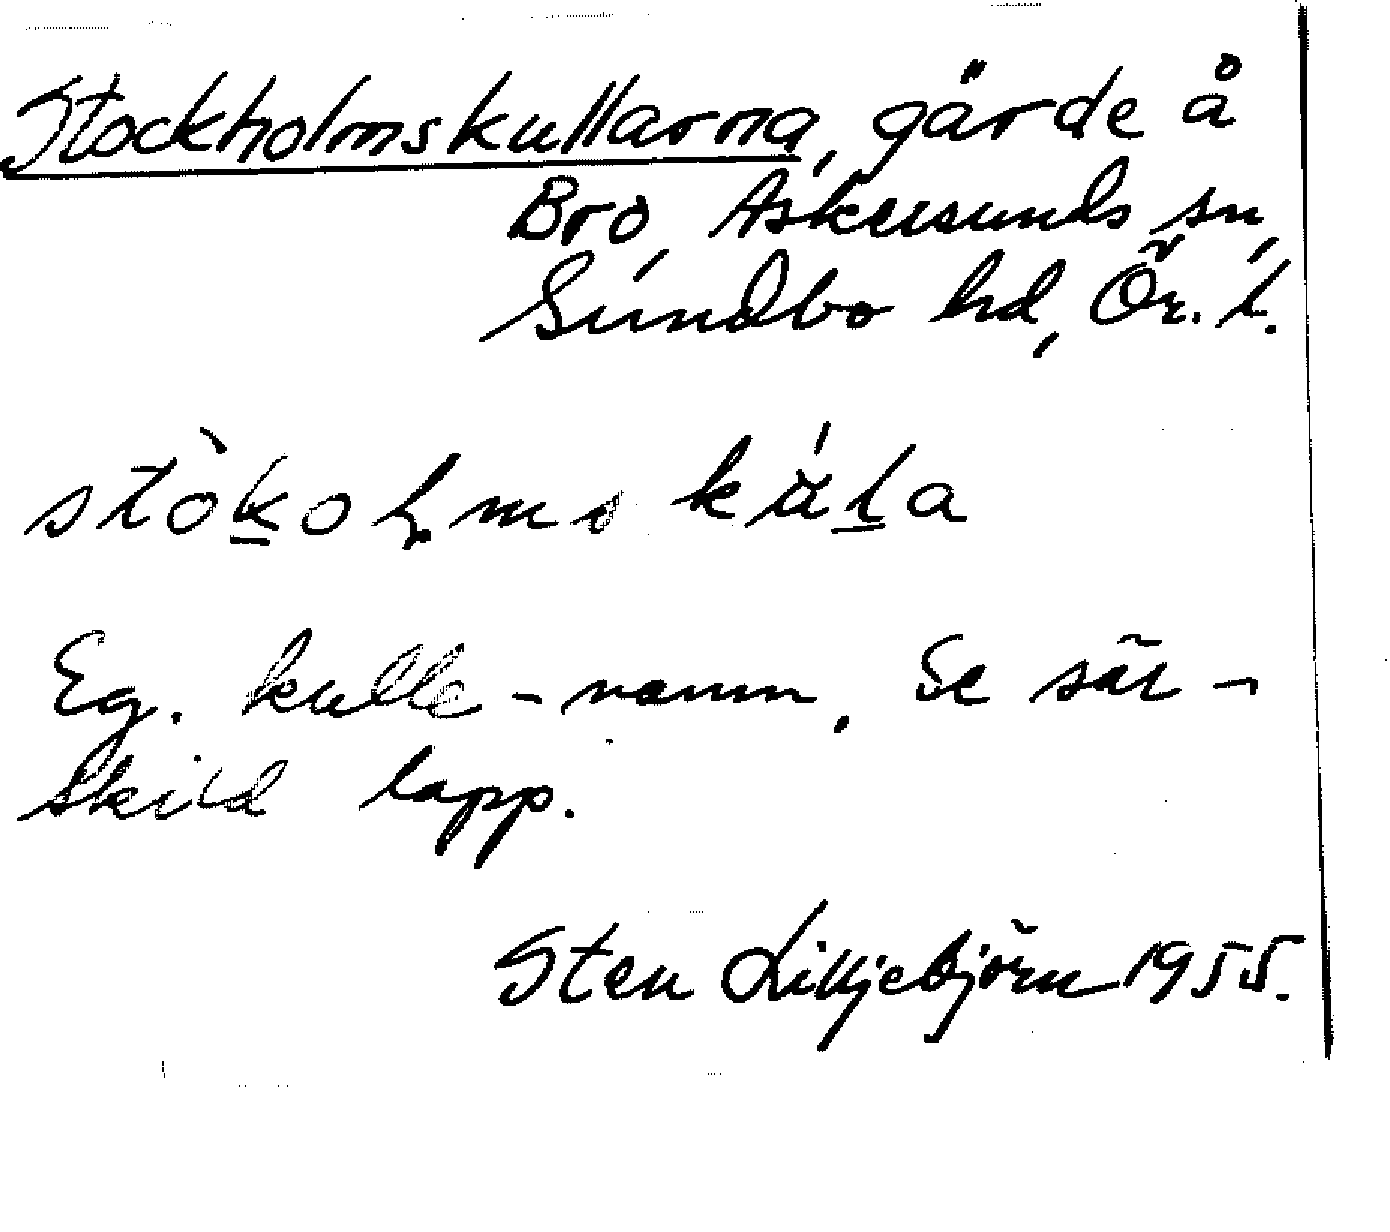 Stockholmskullarna, gärde å
Bro, Askersunds sn,
Sundbo hd, Ör. l.
stòk̲oh̡ms kúl̲a
Eg. kulle-namn. Se sär-
skild lapp.
Sten Lilljebjörn 1955.